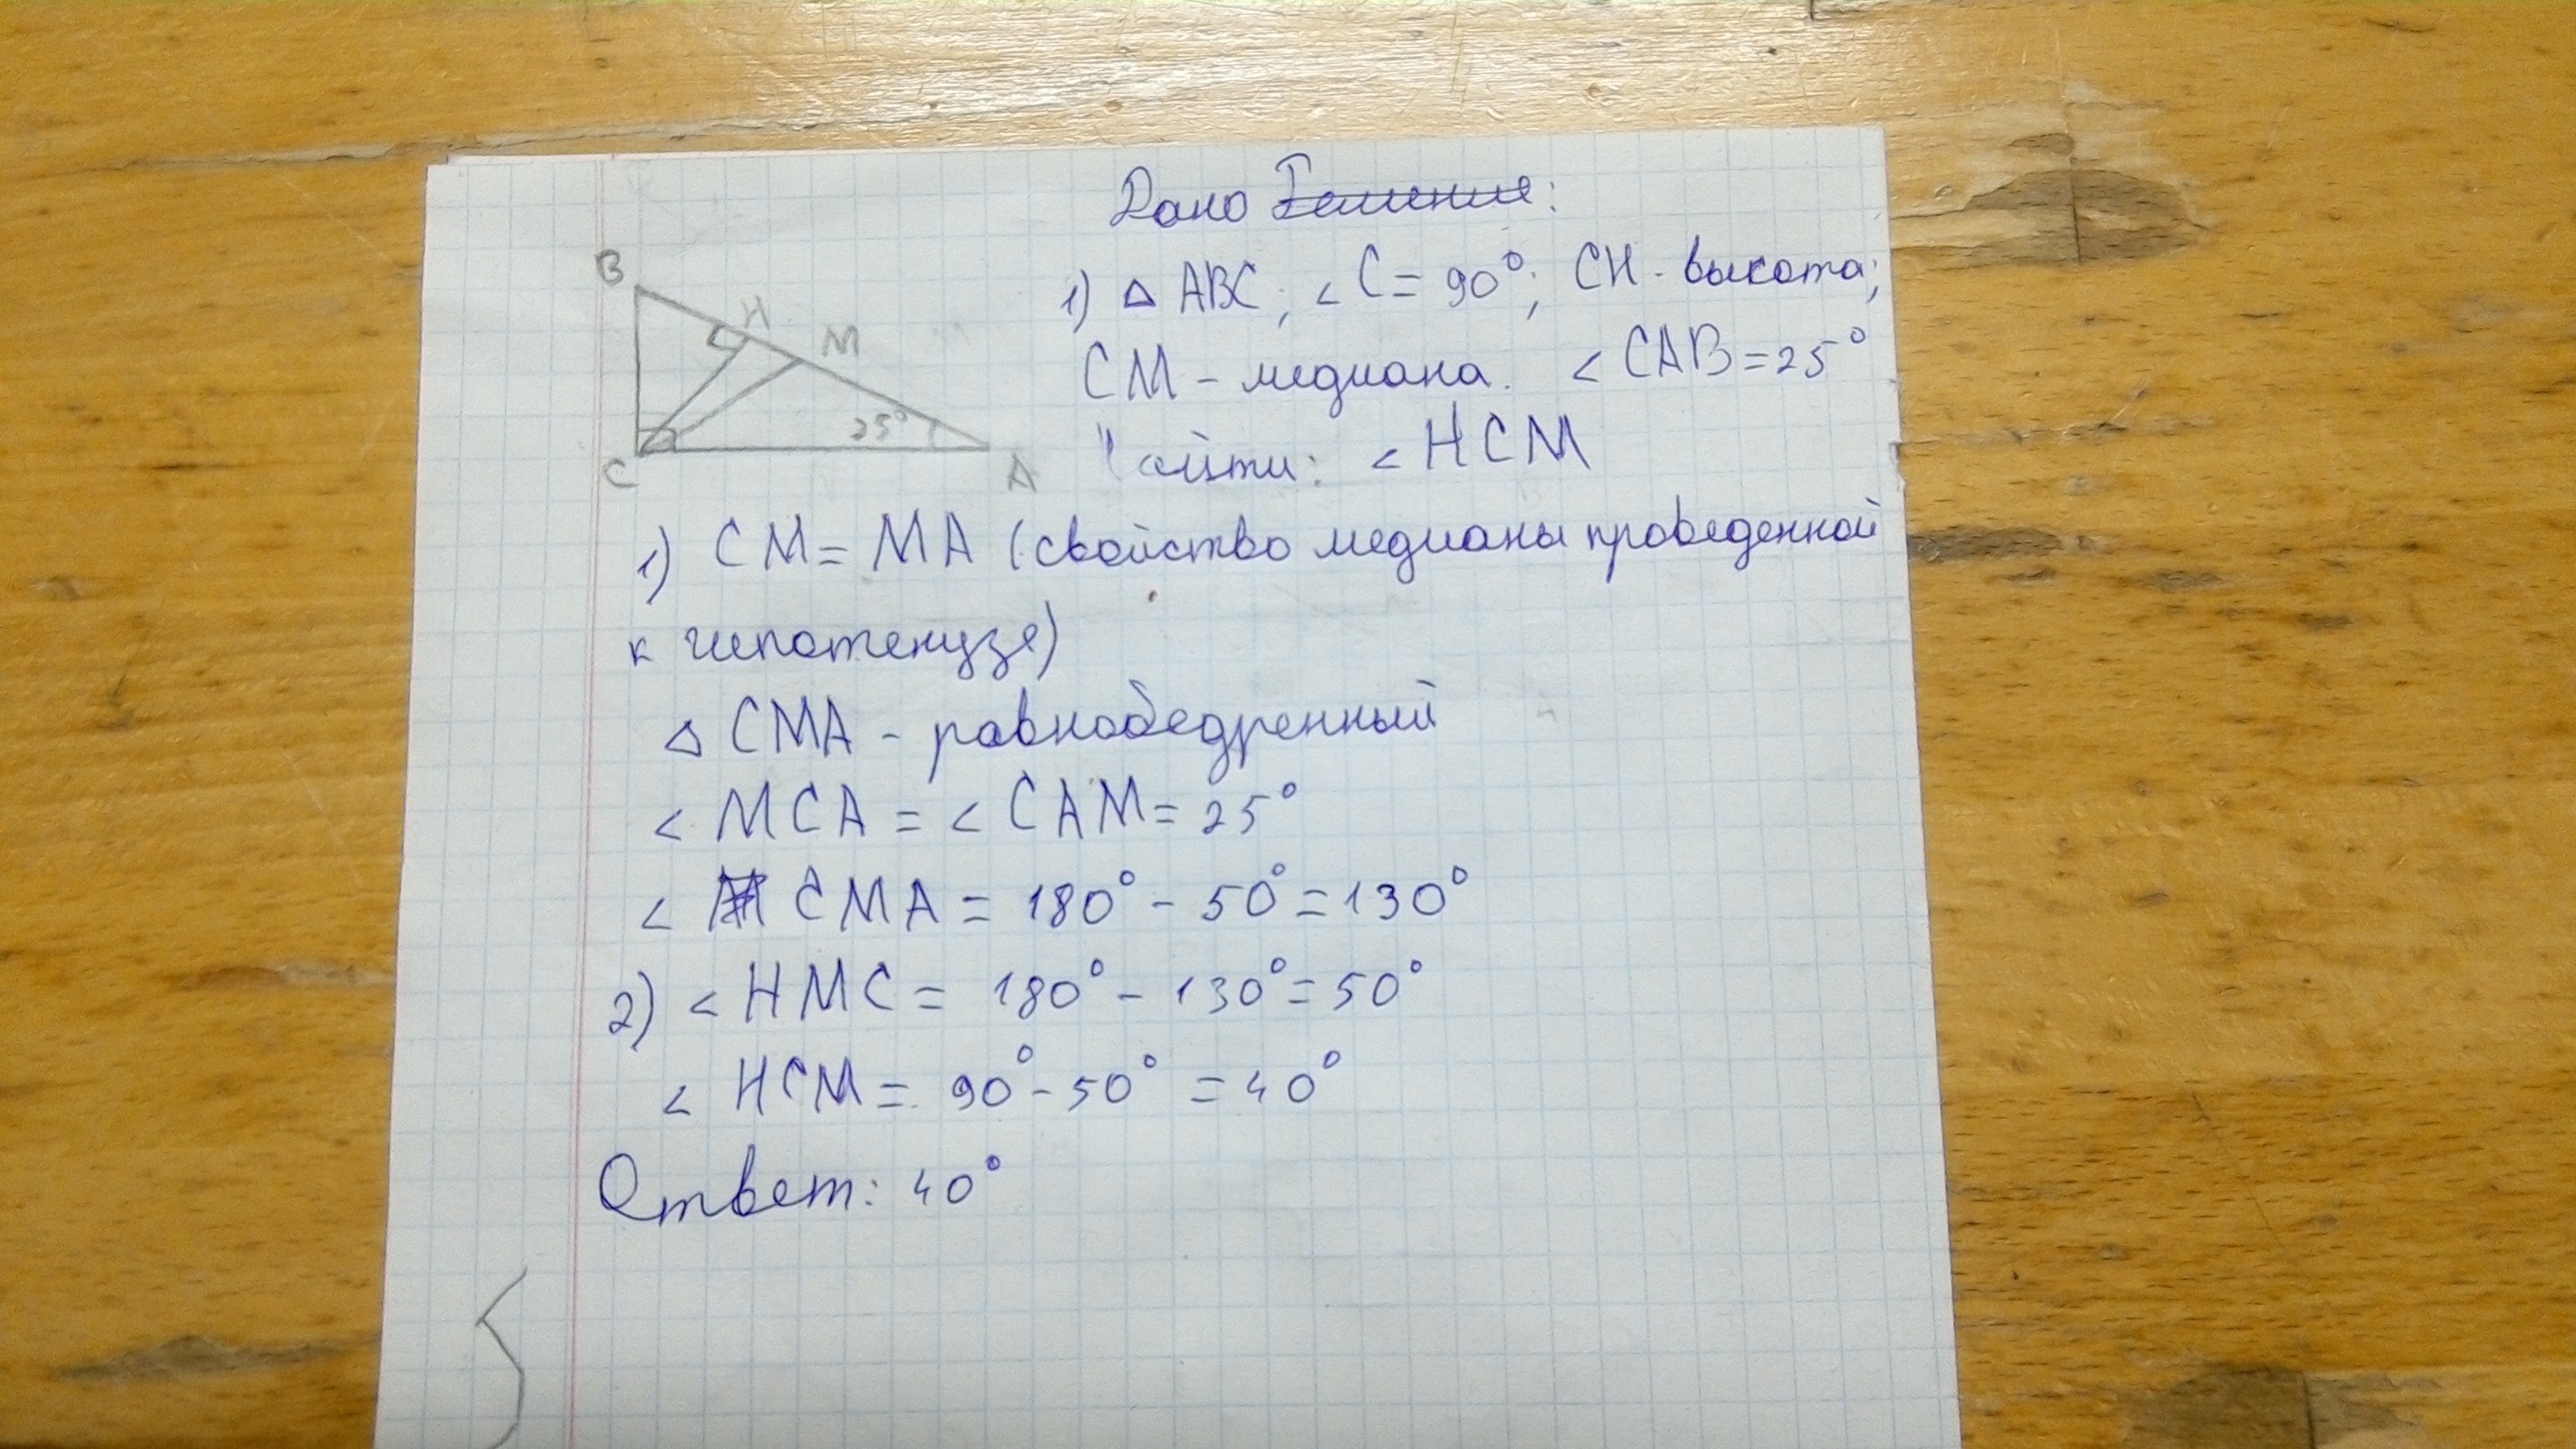 Дано Решение:
B
H
M
25°
C
A
1) △ ABC; ∠C = 90°; CH - высота;
CM - медиана. ∠CAB = 25°
Найти: ∠HCM
1) CM = MA (свойство медианы проведенной
к гипотенузе)
△ CMA - равнобедренный
∠MCA = ∠CAM = 25°
∠CMA = 180° - 50° = 130°
2) ∠HMC = 180° - 130° = 50°
∠HCM = 90° - 50° = 40°
Ответ: 40°